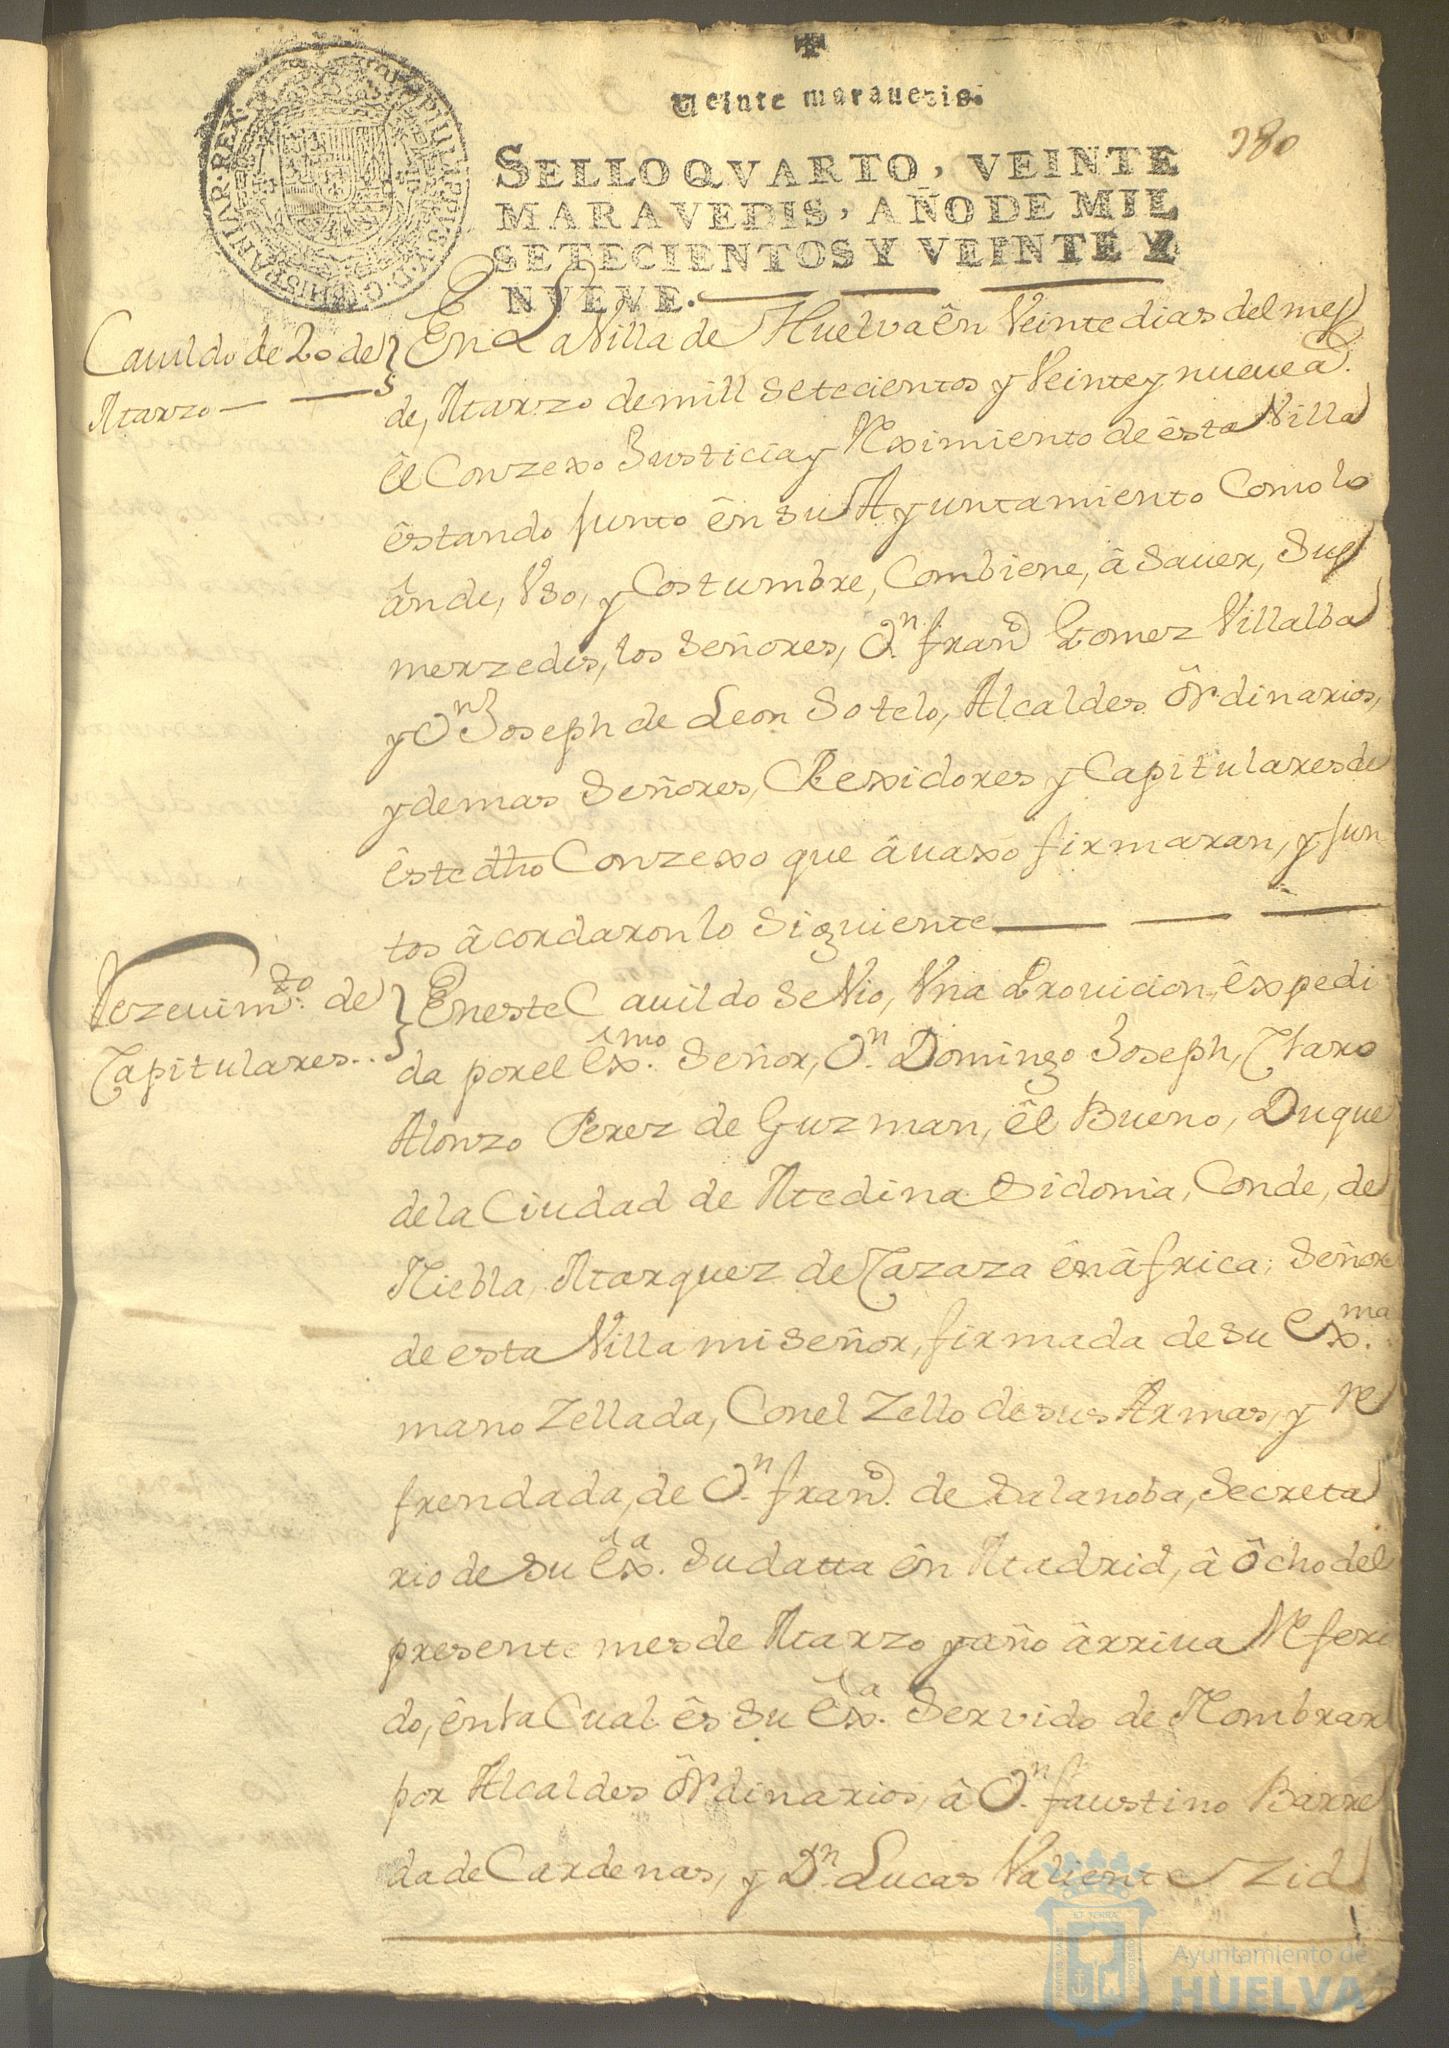 Veinte marauedis.
380
SELLO QVARTO, VEINTE
MARAVEDIS, AÑO DE MIL
SETECIENTOS Y VEINTE Y
NVEVE.
Cauildo de 20 de
Marzo
En La Villa de Huelva ên Veinte dias del mes
de, Marzo de mill setecientos y Veinte y nueue a.
êl Conzexo Justicia y Reximiento de êsta Villa
êstando Junto ên su Ayuntamiento Como lo
ân de, Vso, y Costumbre, Combiene, â Sauer, Sus
merzedes, los Señores, Dn. Franco Gomez Villalba
y Dn Joseph de Leon Sotelo, Alcaldes Ôrdinarios,
y demas Señores, Rexidores y Capitulares de
êste dho Conzexo que âuaxo firmaran, y Jun
tos âcordaron lo Siguiente
Rezeuimto. de
Capitulares..
En este Cauildo se Vio, Vna Prouicion, êxpedi
da por el êxmo. Señor, Dn. Domingo Joseph, Claro
Alonzo Perez de Guzman, êl Bueno, Duque
de la Ciudad de Medina Sidonia, Conde, de
Niebla, Marquez de Cazaza ên âfrica; Señor
de esta Villa mi Señor, firmada de su Exma.
mano Zellada, Con el Zello de sus Armas, y re
frendada, de Dn. Franco. de Salanoba, Secreta
rio de su êxa. Su datta ên Madrid, â ôcho del
presente mes de Marzo y año ârriua Referi
do, ên la Cual ês su êxa. Servido de Nombrar
por Alcaldes Ôrdinarios, â Dn. faustino Barre
da de Cardenas, y Dn. Lucas Valiente Zid
Ayuntamiento de
HUELVA